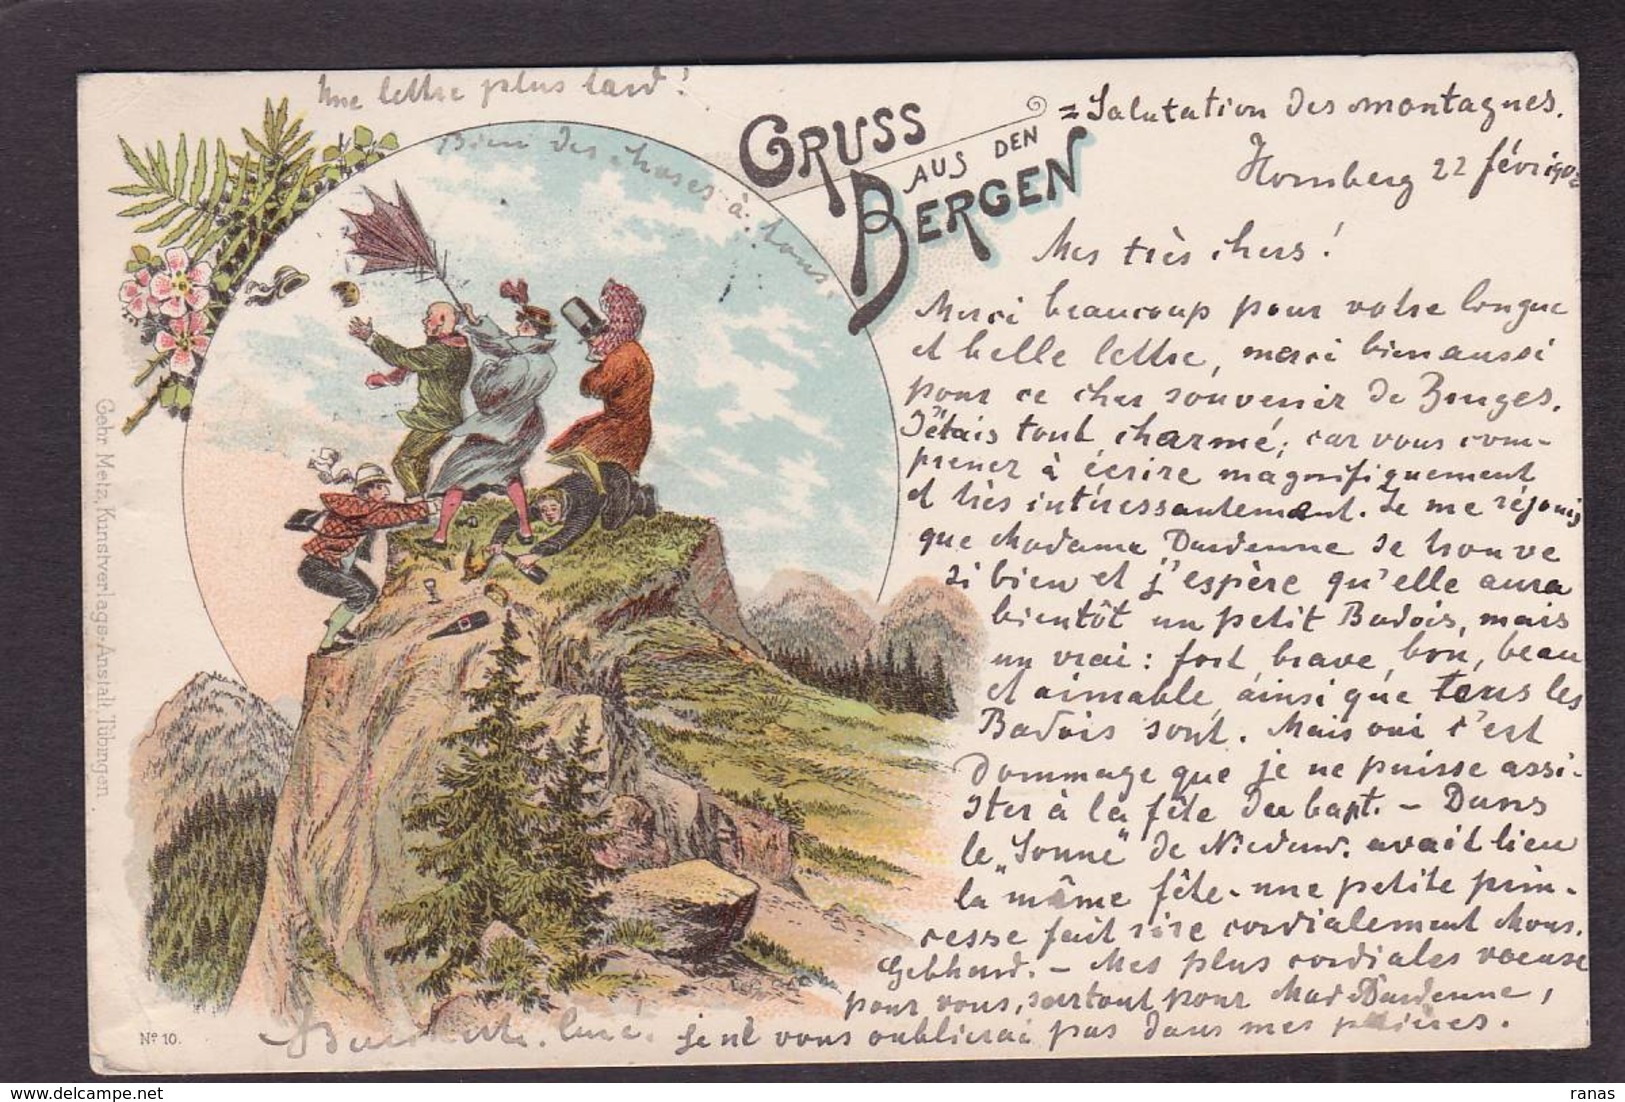 Une lettre plus tard !
Bien des choses à tous.
GRUSS
AUS DEN
BERGEN
= Salutation des montagnes.
Hornberg 22 févri 1902
Mes très chers !
Merci beaucoup pour votre longue
et belle lettre, merci bien aussi
pour ce cher souvenir de Bruges.
J'étais tout charmé; car vous com-
prenez à écrire magnifiquement
et très intéressantement. Je me réjouis
que Madame Dardenne se trouve
si bien et j'espère qu'elle aura
bientôt un petit Badois, mais
un vrai : fort, brave, bon, beau
et aimable, ainsi que tous les
Badois sont. Mais oui c'est
Dommage que je ne puisse assi-
ster à la fête du bapt. - Dans
le "Sonne" de avait lieu
la même fête - une petite prin-
cesse fait rire cordialement Mons.
Gebhard. - Mes plus cordiales voeuxe
pour vous, sartout pour Mad Dardenne,
je ne vous oublierai pas dans mes prières.
curé.
Gebr. Metz, Kunstverlags-Anstalt, Tübingen.
No 10.
ranas